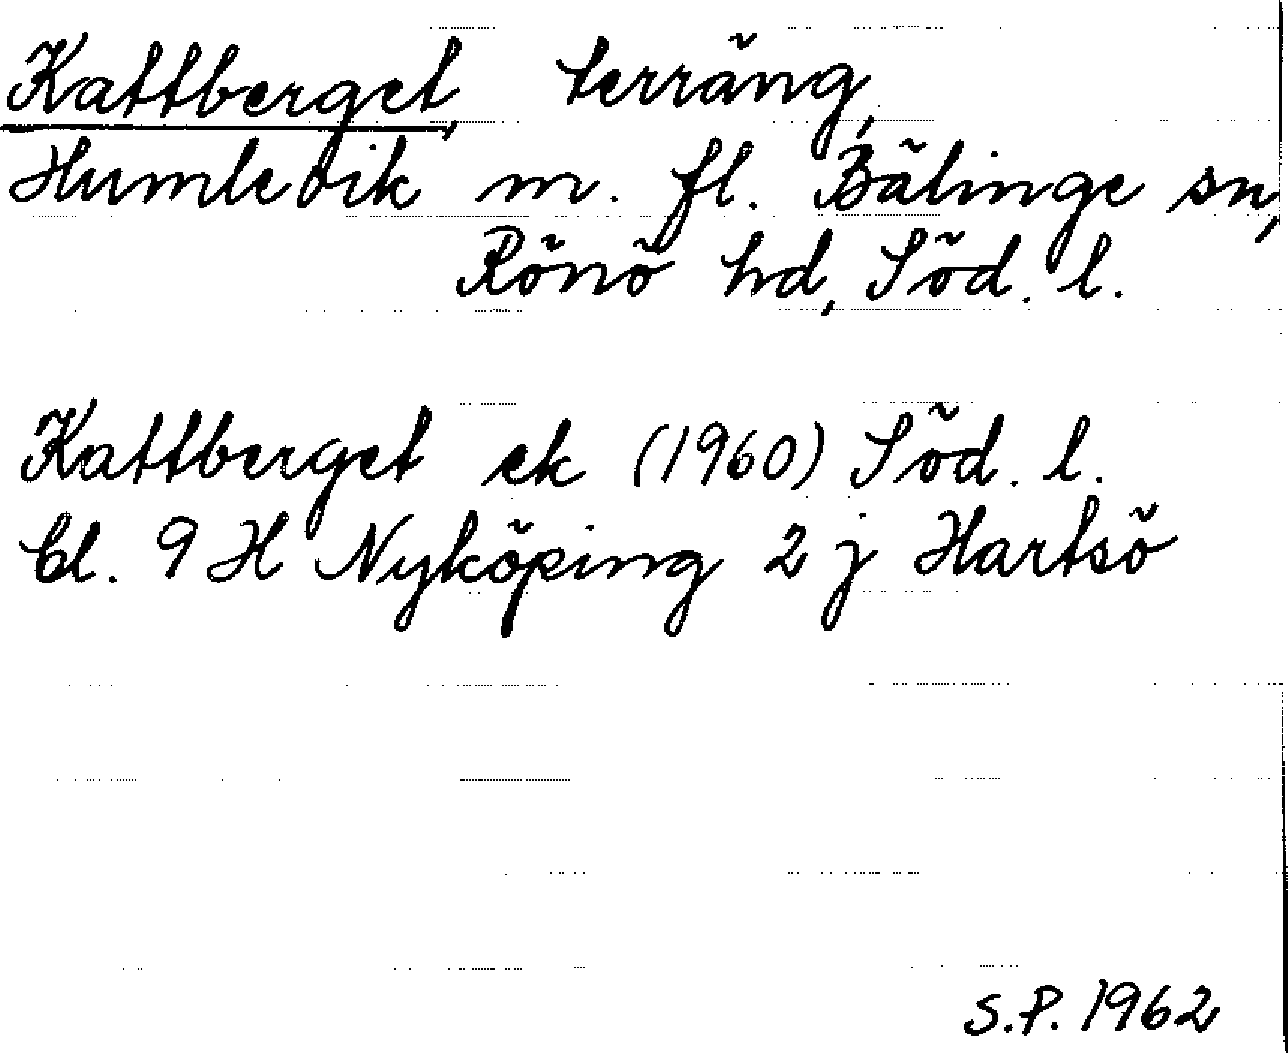 Kattberget, terräng,
Humlevik m. fl. Bälinge sn,
Rönö hd, Söd. l.
Kattberget ek (1960) Söd. l.
bl. 9 H Nyköping 2 j Hartsö
S.P. 1962